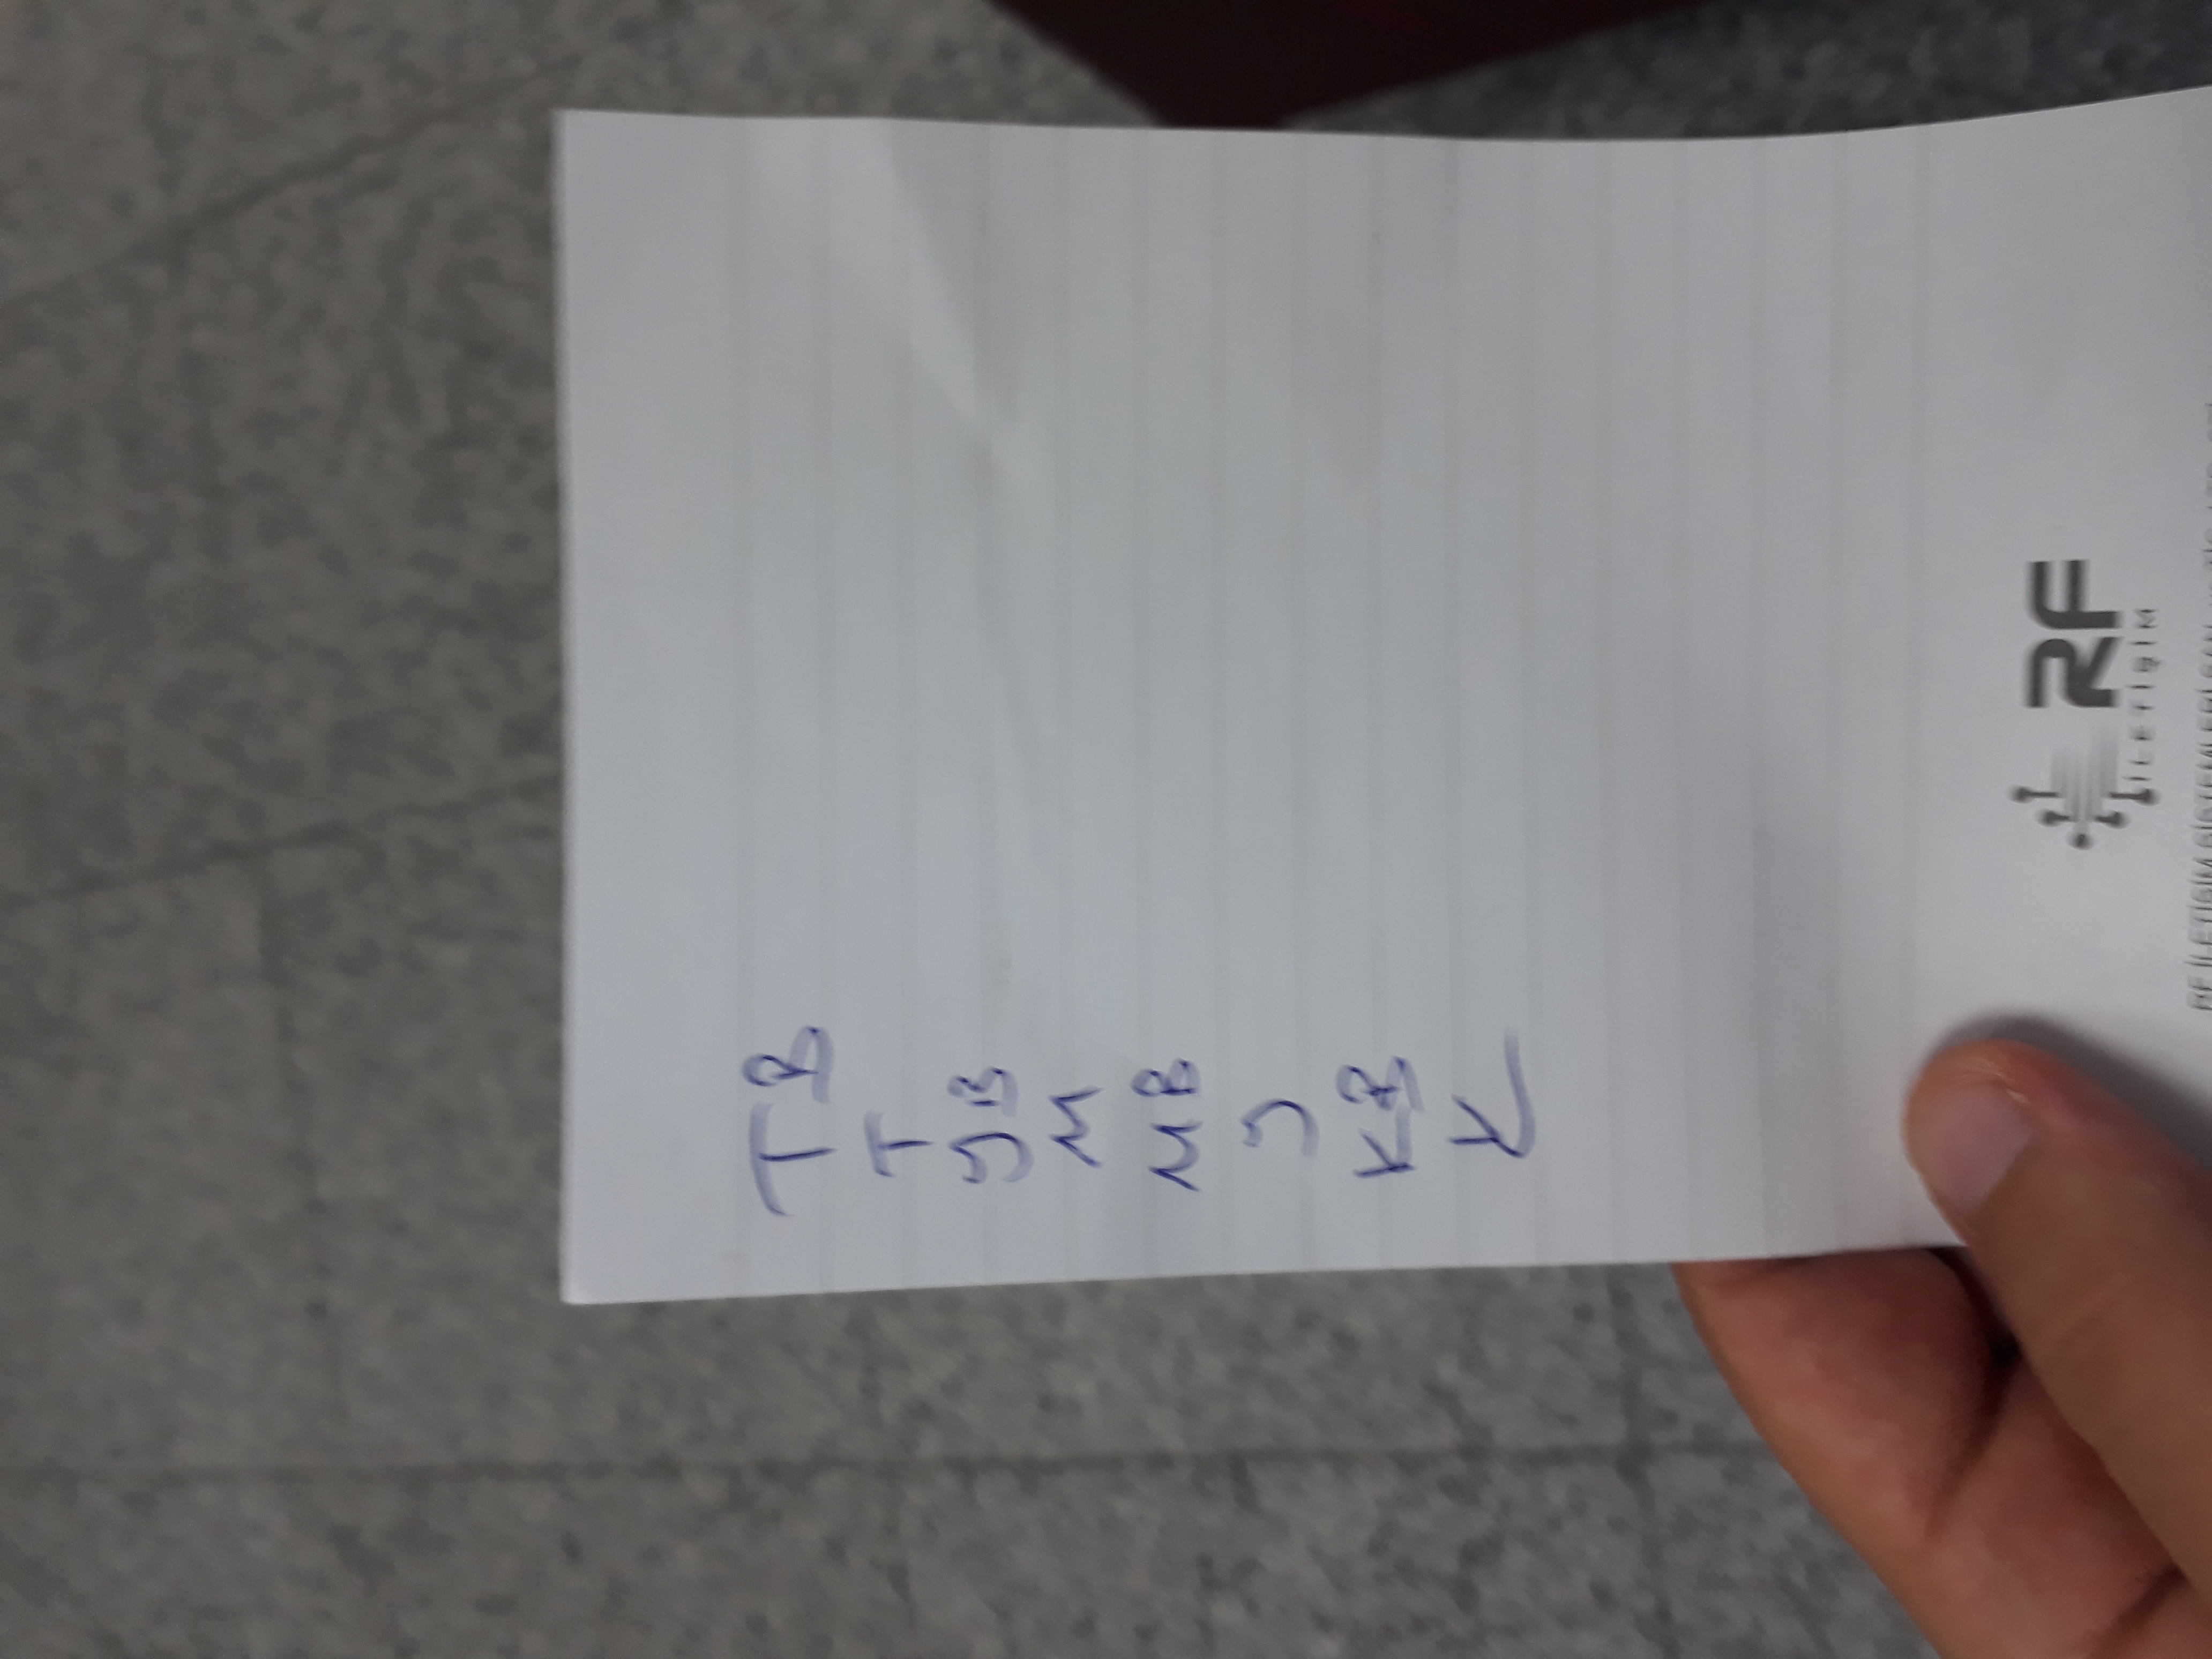 TB
T
YB
M
MB
Y
KB
K
RF
İLETİŞİM
RF İLETİŞİM SİSTEMLERİ SAN. ve TİC. LTD. ŞTİ.